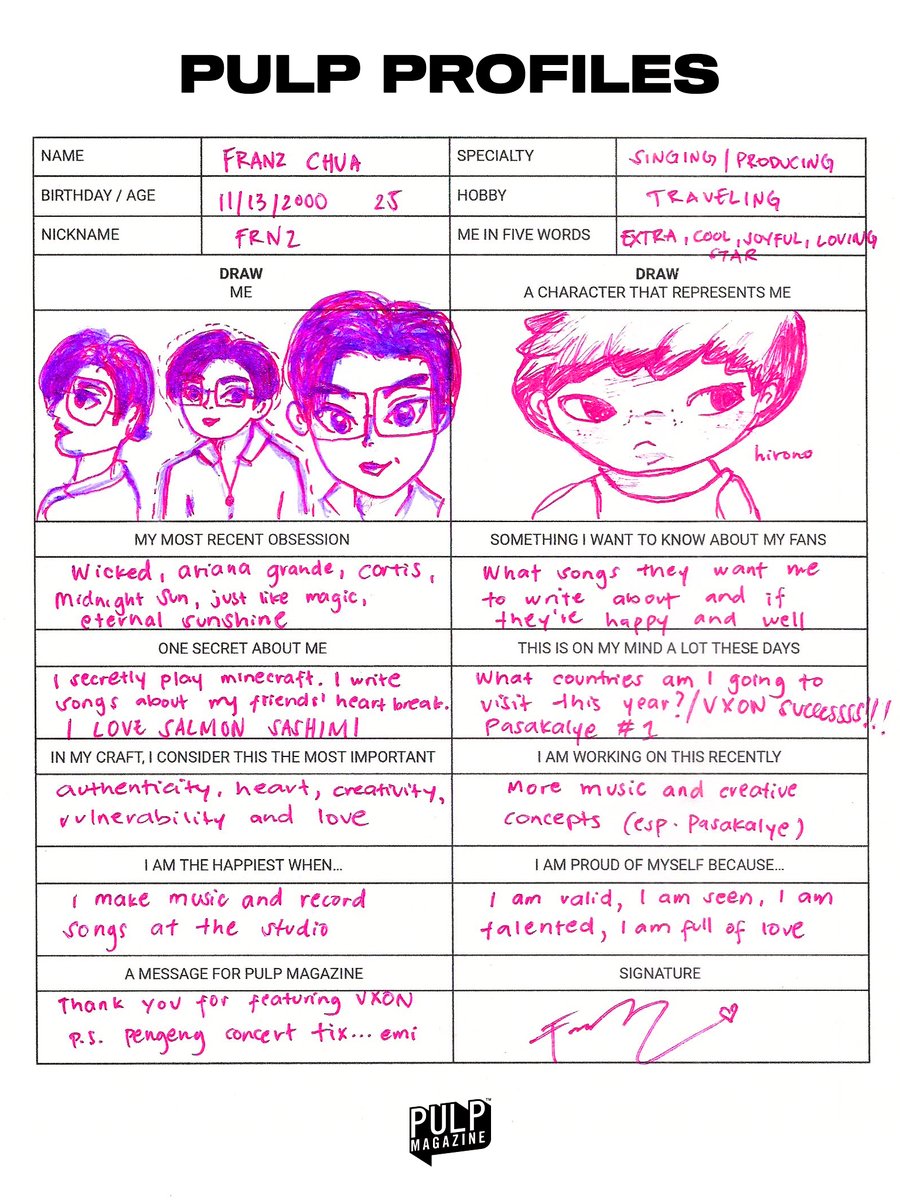 PULP PROFILES
NAME
FRANZ CHUA
SPECIALTY
SINGING / PRODUCING
BIRTHDAY / AGE
11/13/2000 25
HOBBY
TRAVELING
NICKNAME
FRNZ
ME IN FIVE WORDS
EXTRA, COOL, JOYFUL, LOVING
STAR
DRAW
ME
DRAW
A CHARACTER THAT REPRESENTS ME
hirono
MY MOST RECENT OBSESSION
Wicked, ariana grande, cortis,
Midnight sun, just like magic,
eternal sunshine
SOMETHING I WANT TO KNOW ABOUT MY FANS
What songs they want me
to write about and if
they're happy and well
ONE SECRET ABOUT ME
I secretly play minecraft. I write
songs about my friends' heart break.
I LOVE SALMON SASHIMI
THIS IS ON MY MIND A LOT THESE DAYS
What countries am I going to
visit this year?/VXON successss!!!
Pasakalye #1
IN MY CRAFT, I CONSIDER THIS THE MOST IMPORTANT
authenticity, heart, creativity,
vulnerability and love
I AM WORKING ON THIS RECENTLY
More music and creative
concepts (esp. Pasakalye)
I AM THE HAPPIEST WHEN...
I make music and record
songs at the studio
I AM PROUD OF MYSELF BECAUSE...
I am valid, I am seen, I am
talented, I am full of love
A MESSAGE FOR PULP MAGAZINE
Thank you for featuring VXON
p.s. pengeng concert tix... emi
SIGNATURE
PULP
MAGAZINE
TM